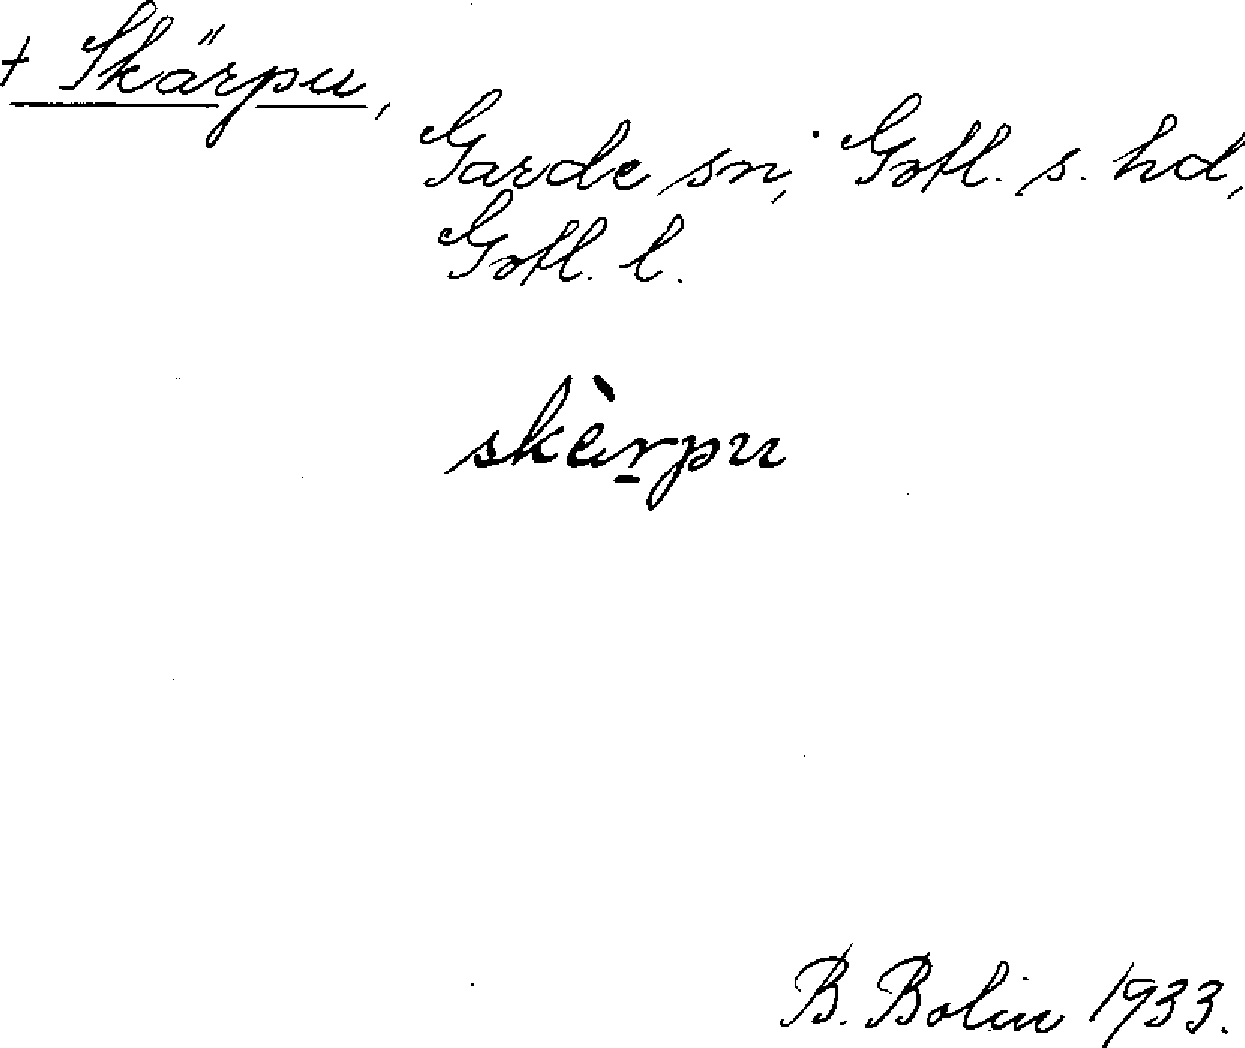 + Skärpu,
Garde sn, Gotl. s. hd,
Gotl. l.
skèrpu
B. Bolin 1933.